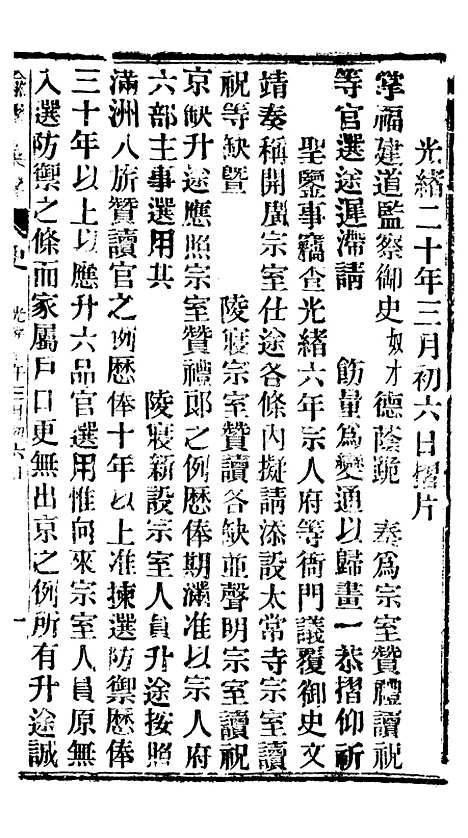 光緒二十年三月初六日摺片
掌福建道監察御史奴才德蔭跪 奏爲宗室贊禮讀祝
等官選途遲滯請 飭量爲變通以歸畫一恭摺仰祈
聖鑒事竊查光緒六年宗人府等衙門議覆御史文
靖奏稱開廣宗室仕途各條內擬請添設太常寺宗室讀
祝等缺曁 陵寢宗室贊讀各缺並聲明宗室讀祝
京缺升途應照宗室贊禮郎之例歷俸期滿准以宗人府
六部主事選用其 陵寢新設宗室人員升途按照
滿洲八旂贊讀官之例歷俸十年以上准揀選防禦歷俸
三十年以上以應升六品官選用惟向來宗室人員原無
入選防禦之條而家屬戶口更無出京之例所有升途誠
諭摺彙存 史 光緒 年三月初六日 一